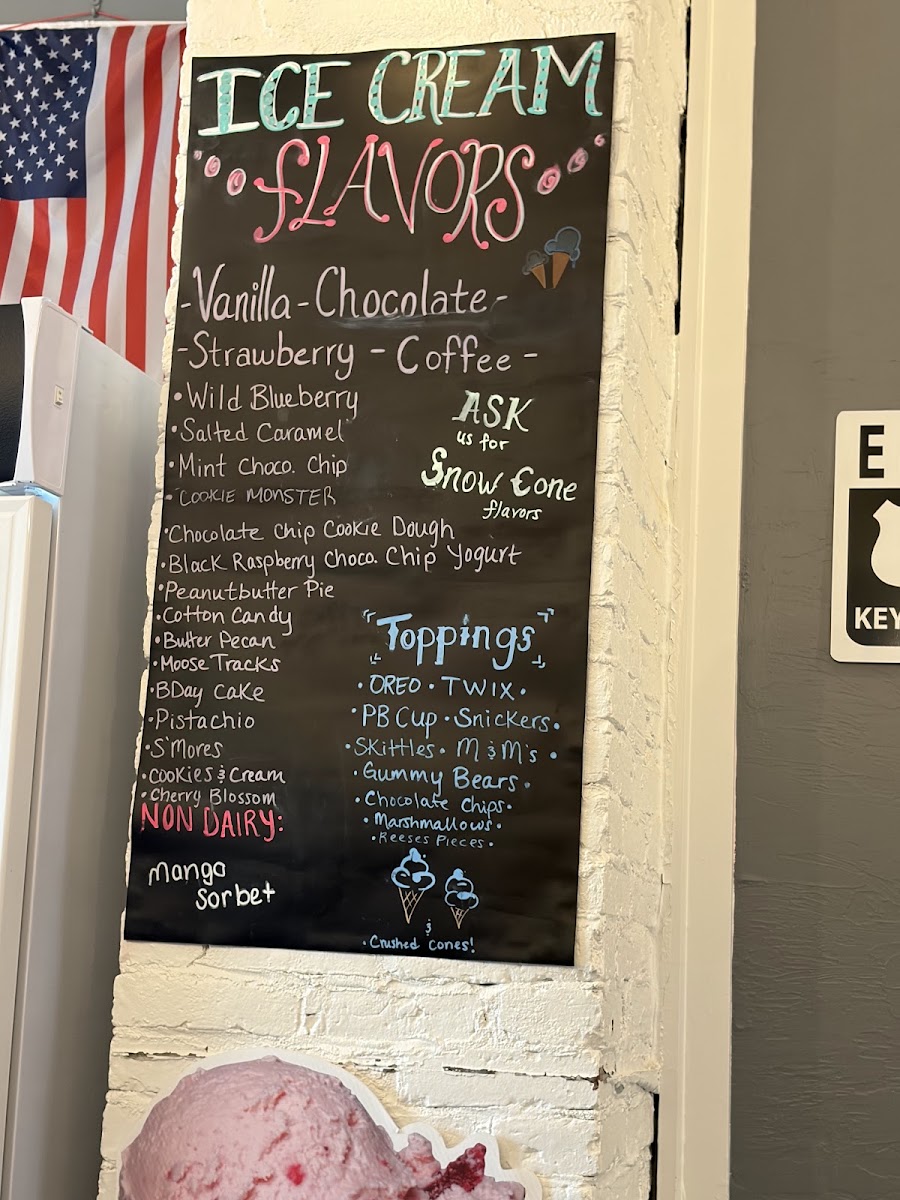 ICE CREAM
FLAVORS
-Vanilla-Chocolate-
-Strawberry - Coffee -
• Wild Blueberry
• Salted Caramel
• Mint Choco. Chip
• COOKIE MONSTER
• Chocolate Chip Cookie Dough
• Black Raspberry Choco. Chip Yogurt
• Peanutbutter Pie
• Cotton Candy
• Butter Pecan
• Moose Tracks
• BDay Cake
• Pistachio
• S'mores
• Cookies & Cream
• Cherry Blossom
NON DAIRY:
mango
sorbet
ASK
us for
Snow Cone
flavors
Toppings
• OREO • TWIX •
• PB Cup • Snickers •
• Skittles • M & M's •
• Gummy Bears •
• Chocolate Chips •
• Marshmallows •
• Reeses Pieces •
&
• Crushed Cones!
E
KEY